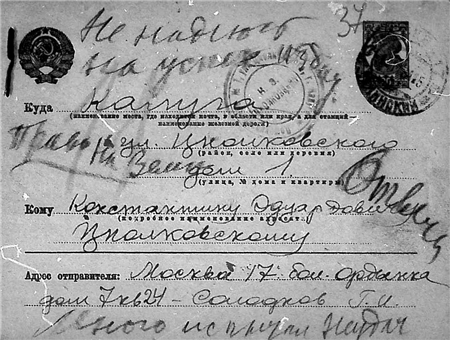 Не надеюсь 37
на успех
Куда Калуга
(наименование места, где находится почта, и области или края, а для станций—
наименование железной дороги)
ул. Циолковского
(район, село или деревня)
дом 1
(улица, № дома и квартиры)
Кому Константину Эдуардовичу
(подробное наименование адресата)
Циолковскому
Адрес отправителя: Москва 17. бол. ордынка
дом 7 кв 24 — Солодков Г. И.
Много испытал неудач